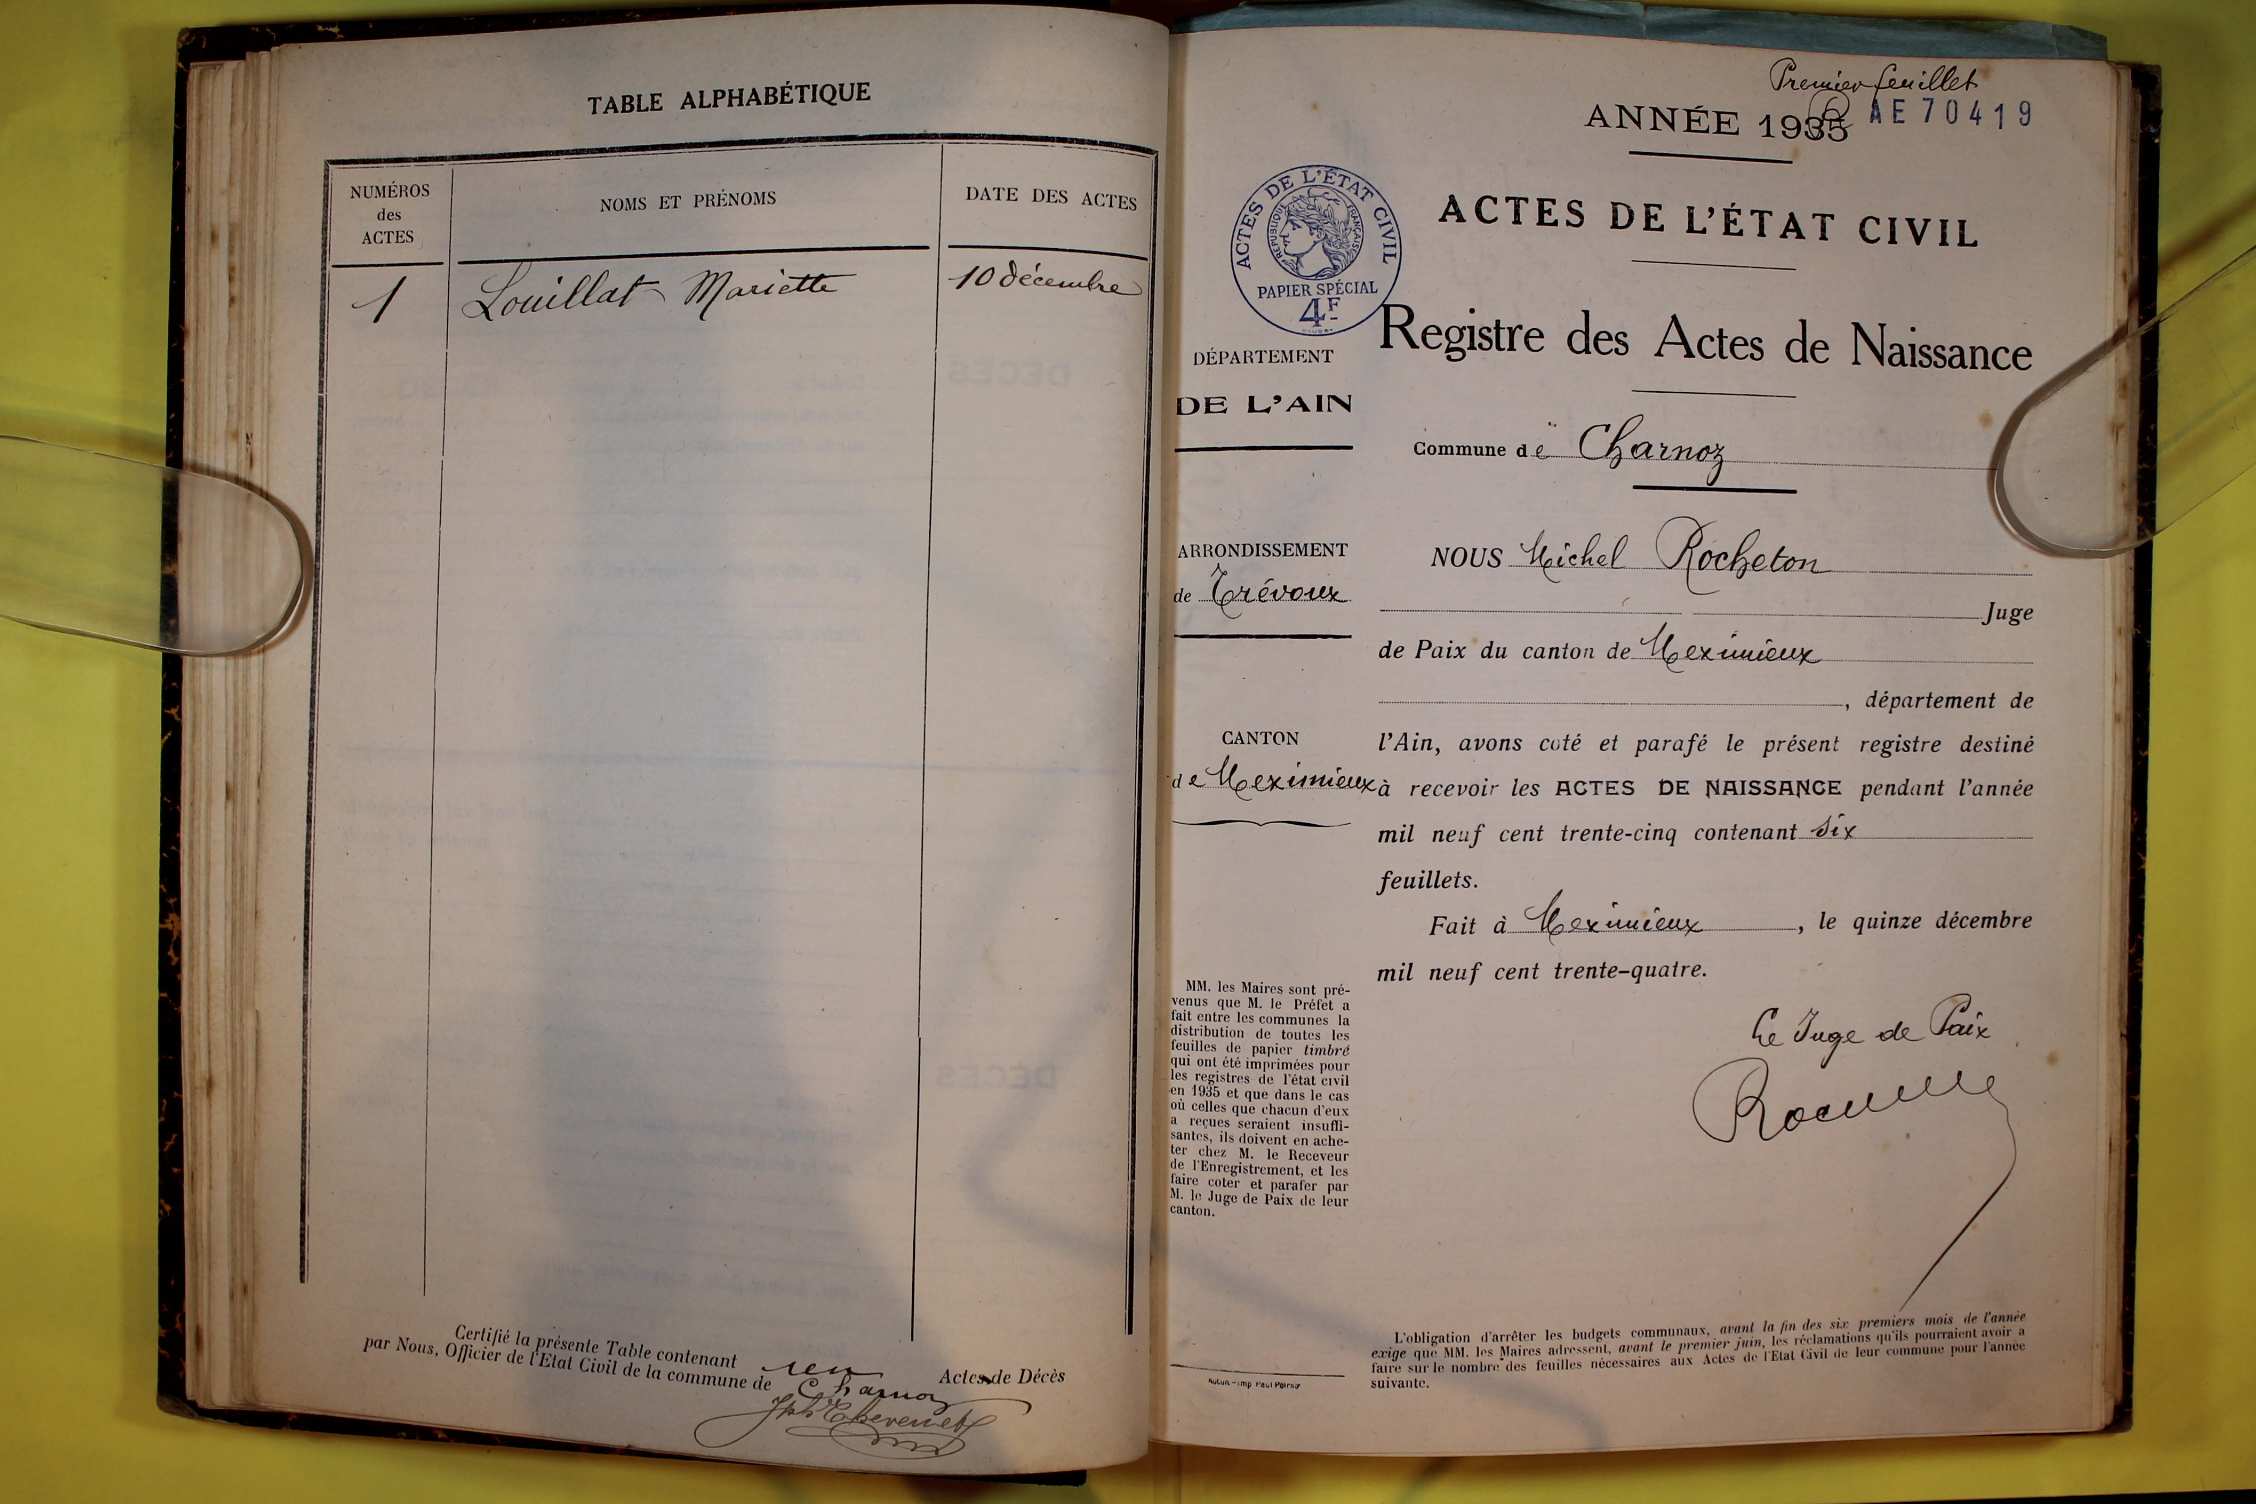 TABLE ALPHABÉTIQUE
NUMÉROS
des
ACTES
NOMS ET PRÉNOMS
DATE DES ACTES
1 Louillat Mariette 10 décembre
Certifié la présente Table contenant un Actes de Décès
par Nous, Officier de l'Etat Civil de la commune de Charnoz
Premier feuillet
ANNÉE 1935
AE70419
ACTES DE L'ÉTAT CIVIL
RÉPUBLIQUE FRANÇAISE
PAPIER SPÉCIAL
4F
ACTES DE L'ÉTAT CIVIL
Registre des Actes de Naissance
DÉPARTEMENT
DE L'AIN
Commune de Charnoz
ARRONDISSEMENT
de Trévoux
CANTON
de Meximieux
MM. les Maires sont pré-
venus que M. le Préfet a
fait entre les communes la
distribution de toutes les
feuilles de papier timbré
qui ont été imprimées pour
les registres de l'état civil
en 1935 et que dans le cas
où celles que chacun d'eux
a reçues seraient insuffi-
santes, ils doivent en ache-
ter chez M. le Receveur
de l'Enregistrement, et les
faire coter et parafer par
M. le Juge de Paix de leur
canton.
NOUS Michel Rocheton
Juge
de Paix du canton de Meximieux
, département de
l'Ain, avons coté et parafé le présent registre destiné
à recevoir les ACTES DE NAISSANCE pendant l'année
mil neuf cent trente-cinq contenant six
feuillets.
Fait à Meximieux, le quinze décembre
mil neuf cent trente-quatre.
Le Juge de Paix
L'obligation d'arrêter les budgets communaux, avant la fin des six premiers mois de l'année
exige que MM. les Maires adressent, avant le premier juin, les réclamations qu'ils pourraient avoir a
faire sur le nombre des feuilles nécessaires aux Actes de l'Etat Civil de leur commune pour l'année
suivante.